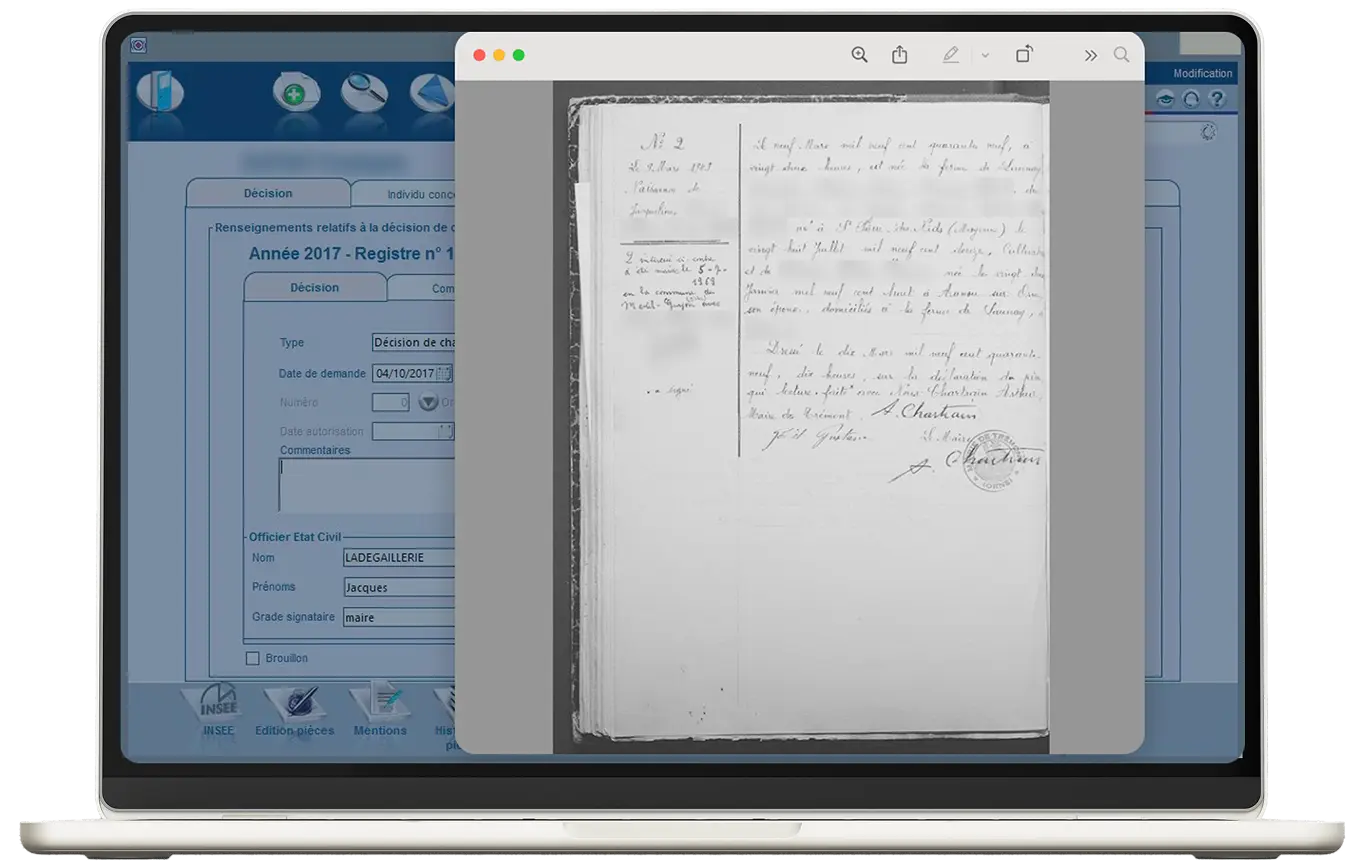 Modification
Décision
Individu conc
Renseignements relatifs à la décision de c
Année 2017 - Registre n° 1
Décision
Com
Type
Décision de cha
Date de demande
04/10/2017
Numéro
0
Or
Date autorisation
Commentaires
Officier Etat Civil
Nom
LADEGAILLERIE
Prénoms
Jacques
Grade signataire
maire
Brouillon
INSEE
INSEE
Edition pièces
Mentions
His
pi
N° 2
Le 9 Mars 1949
Naissance de
Jacqueline
en la commune de
signé
Le neuf Mars mil neuf cent quarante neuf, à
vingt deux heures, est née la ferme de Launay
né à St (Mayenne) le
vingt huit Juillet mil neuf cent douze, Cultivateur
et de née le vingt
Janvier mil neuf cent huit à sur Orne
son épouse, domiciliés à la ferme de Launay, à
Dressé le dix Mars mil neuf cent quarante-
neuf, dix heures, sur la déclaration du père
qui lecture faite avec Nous Chartrain Arthur,
Maire de Trémont, A. Chartrain
Gustave Le Maire
A. Chartrain